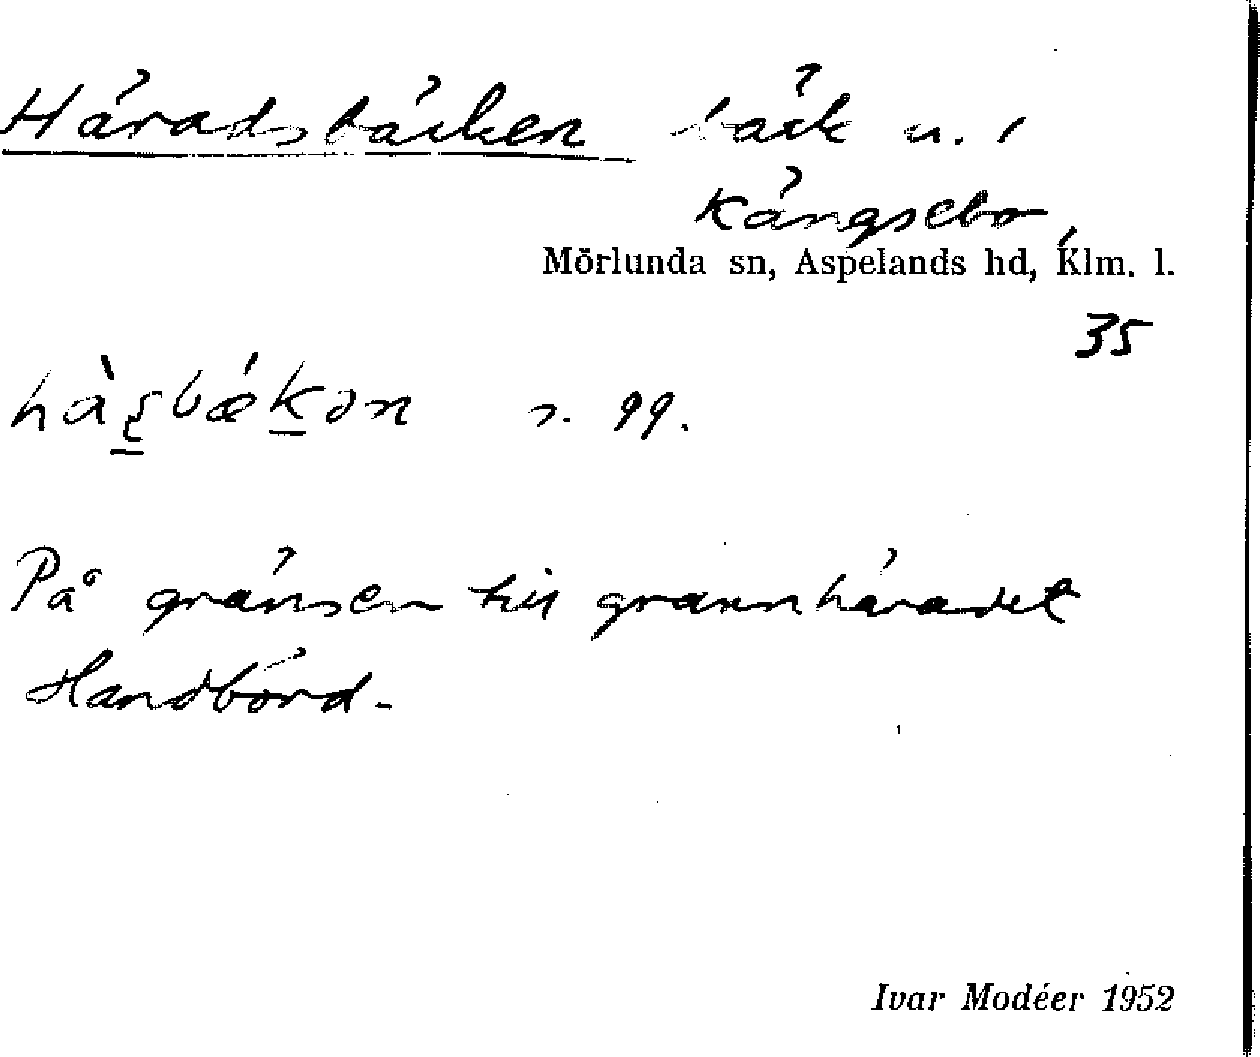 Häradsbäcken bäck u. i
Kängsebo,
Mörlunda sn, Aspelands hd, Klm. l.
35
s. 99.
På gränsen till grannhäradet
Handbörd.
Ivar Modéer 1952